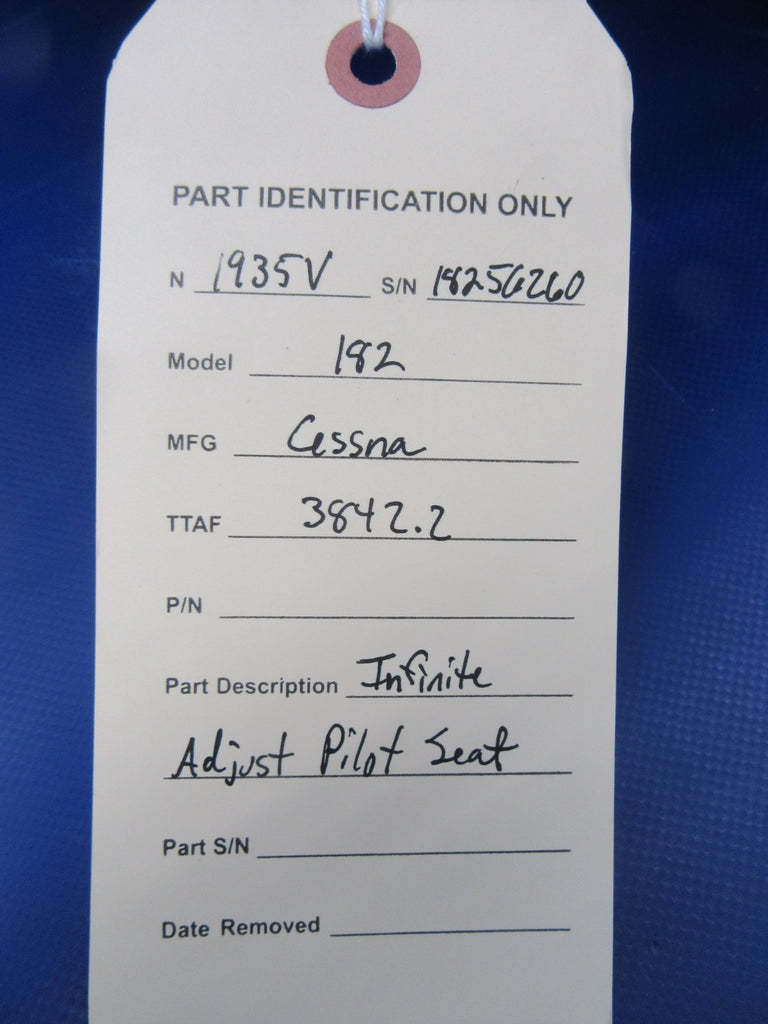 PART IDENTIFICATION ONLY
N 1935V S/N 18256260
Model 182
MFG Cessna
TTAF 3842.2
P/N
Part Description Infinite
Adjust Pilot Seat
Part S/N
Date Removed